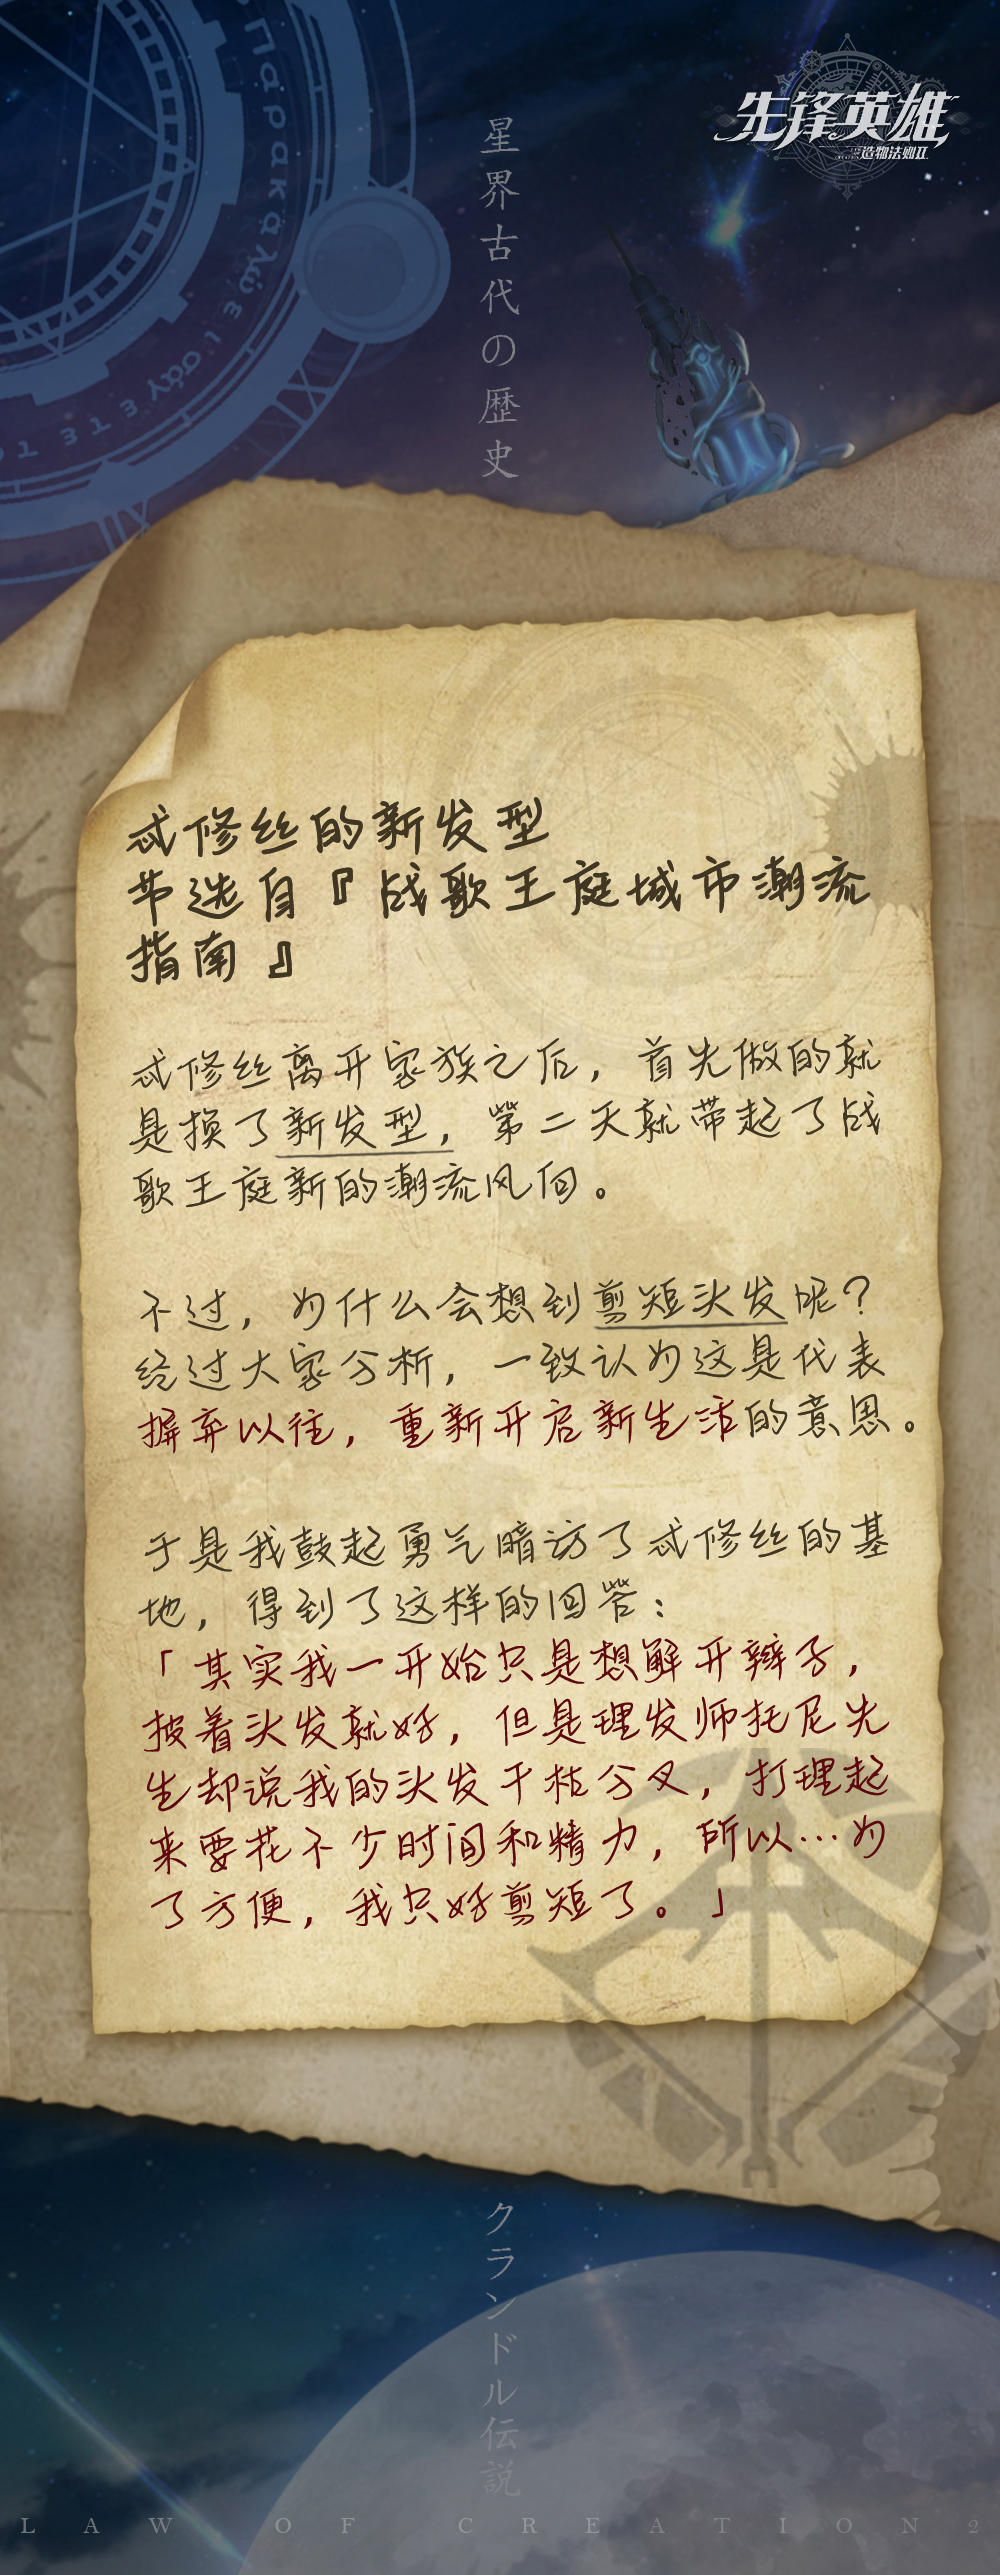 先锋英雄
造物法则II
星界古代の歴史
忒修丝的新发型
节选自『战歌王庭城市潮流
指南』
忒修丝离开家族之后，首先做的就
是换了新发型，第二天就带起了战
歌王庭新的潮流风向。
不过，为什么会想到剪短头发呢？
经过大家分析，一致认为这是代表
摒弃以往，重新开启新生活的意思。
于是我鼓起勇气暗访了忒修丝的基
地，得到了这样的回答：
「其实我一开始只是想解开辫子，
披着头发就好，但是理发师托尼先
生却说我的头发干枯分叉，打理起
来要花不少时间和精力，所以…为
了方便，我只好剪短了。」
クランドル伝説
LAW OF CREATION 2